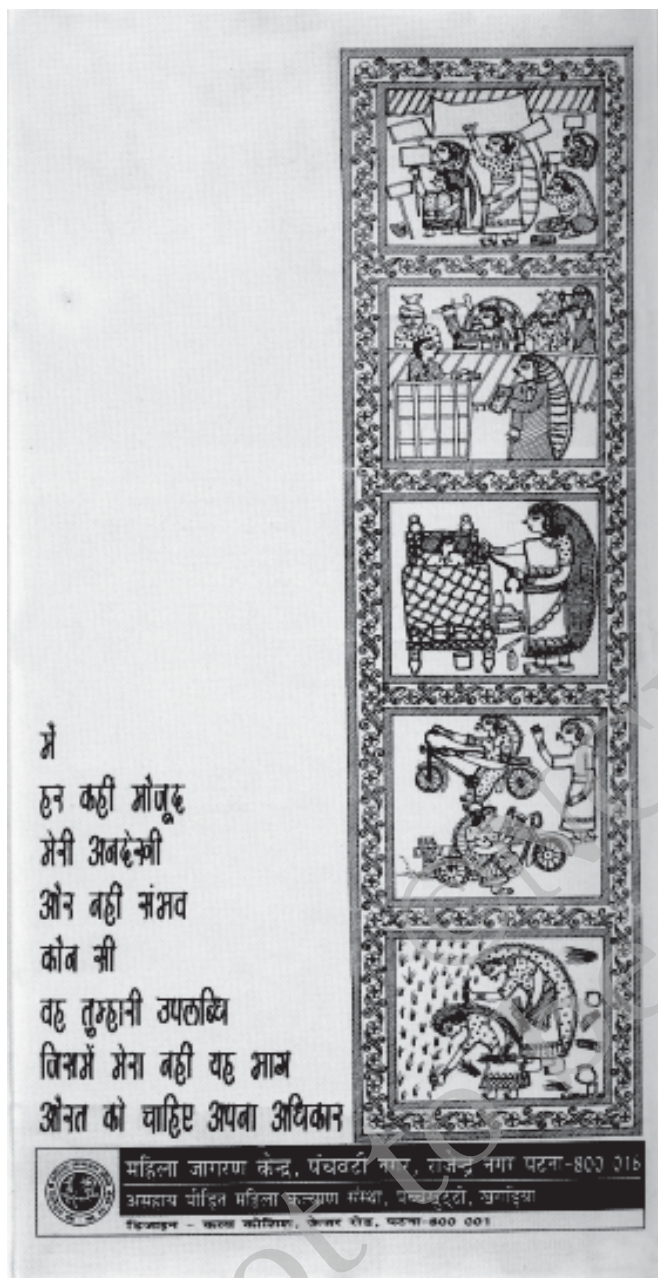 में
हर कहीं मौजूद
मेरी अनदेखी
और नहीं संभव
कौन सी
वह तुम्हारी उपलब्धि
जिसमें मेरा नहीं यह भाग
औरत को चाहिए अपना अधिकार
महिला जागरण केन्द्र, पंचवटी नगर, राजेन्द्र नगर पटना-800 016
असहाय पीड़ित महिला कल्याण संस्था,
डिजाइन - रोड, पटना-800 001